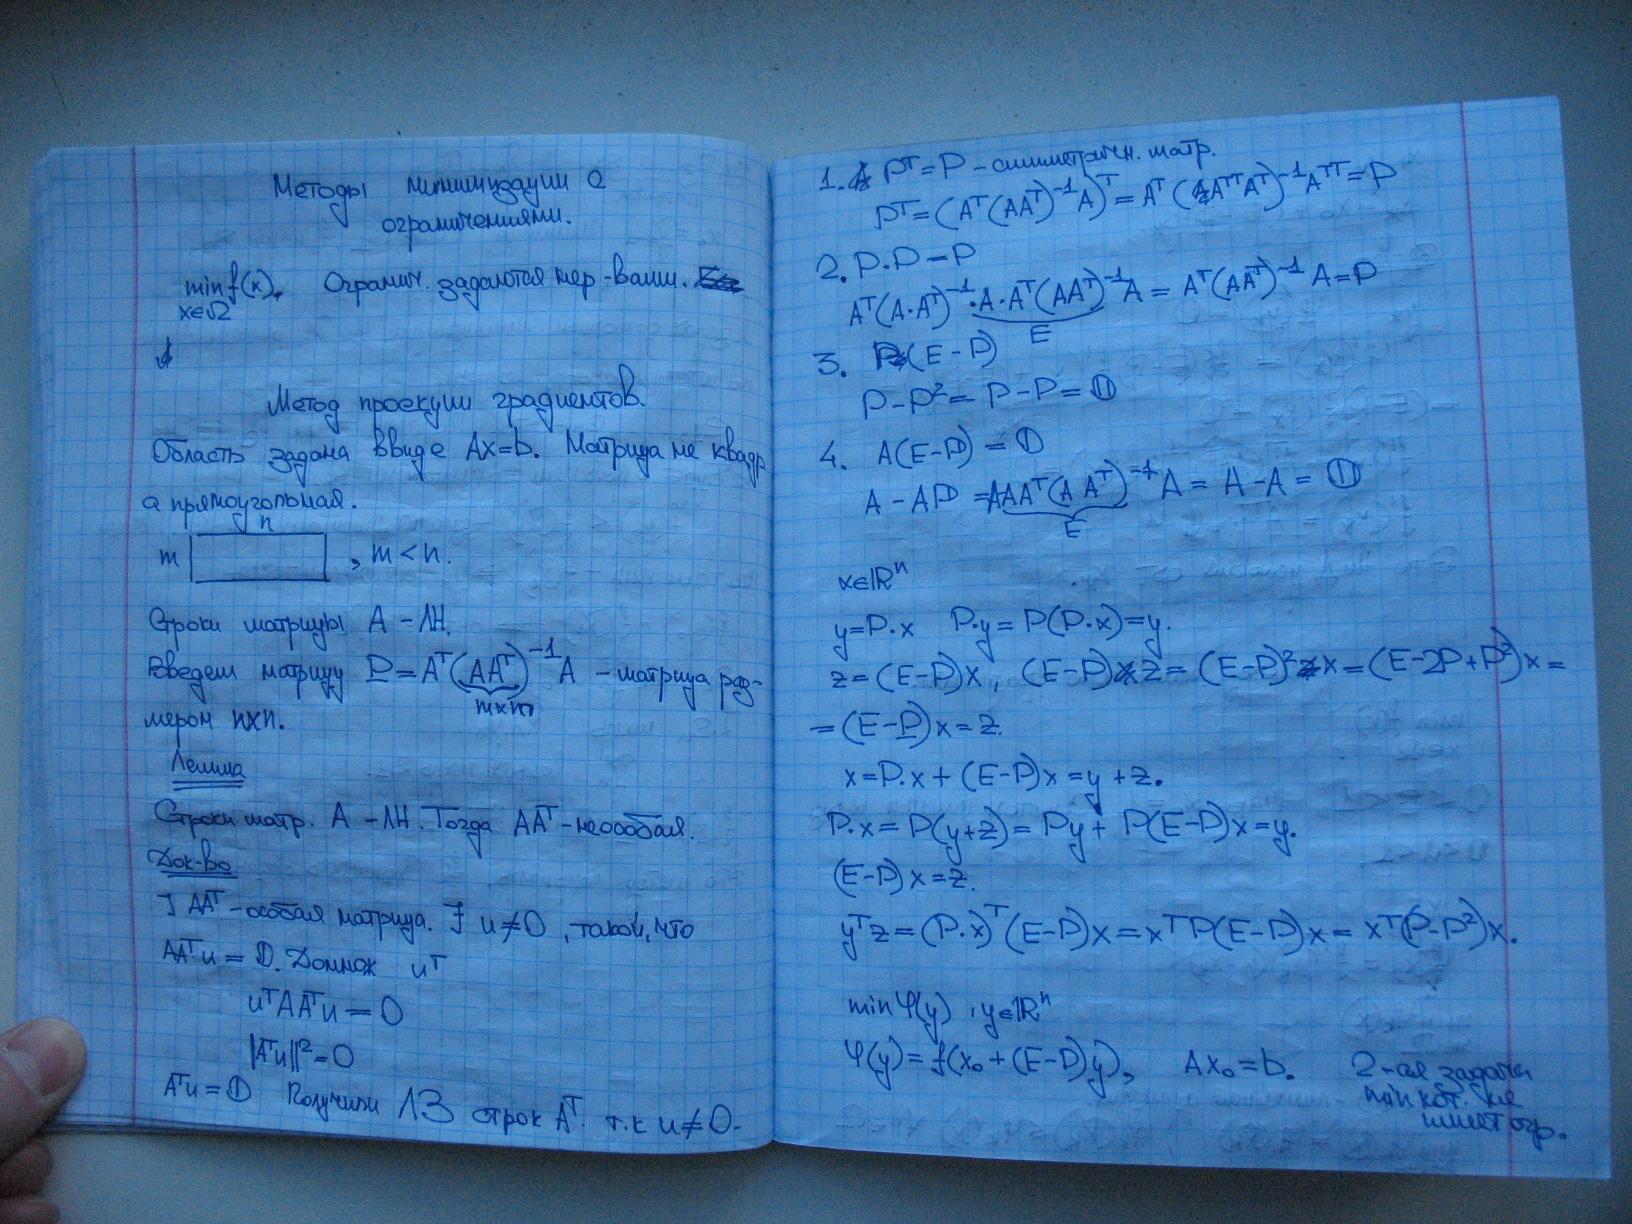 Методы минимизации с
ограничениями.
min f(x). Огранич. задаются нер-вами.
x∈Ω
Метод проекции градиентов.
Область задана ввиде Ax=b. Матрица не квадр
а прямоугольная.
n
m , m<n.
Строки матрицы A - ЛН.
Введем матрицу P=Aᵀ(AAᵀ)⁻¹A - матрица раз-
m×m
мером n×n.
Лемма
Строки матр. A - ЛН. Тогда AAᵀ - неособая.
Док-во
] AAᵀ - особая матрица. ∃ u≠0, такой, что
AAᵀu = 𝟘. Домнож uᵀ
uᵀAAᵀu = 0
||Aᵀu||²=0
Aᵀu = 𝟘 Получили ЛЗ строк Aᵀ. т.к u≠0.
1. Pᵀ=P - симметричн. матр.
Pᵀ=(Aᵀ(AAᵀ)⁻¹A)ᵀ = Aᵀ(AᵀᵀAᵀ)⁻¹Aᵀᵀ=P
2. P·P=P
Aᵀ(A·Aᵀ)⁻¹·A·Aᵀ(AAᵀ)⁻¹A = Aᵀ(AAᵀ)⁻¹A=P
E
3. P(E-P)
P-P²= P-P= 𝟘
4. A(E-P) = 𝟘
A-AP =AAAᵀ(AAᵀ)⁻¹A = A-A = 𝟘
E
x∈ℝⁿ
y=P·x P·y= P(P·x)=y.
z=(E-P)x, (E-P)z= (E-P)²x=(E-2P+P²)x=
=(E-P)x=z.
x=P·x+(E-P)x=y+z.
P·x=P(y+z)= Py+ P(E-P)x=y.
(E-P)x=z.
yᵀz=(P·x)ᵀ(E-P)x=xᵀP(E-P)x= xᵀ(P-P²)x.
min φ(y), y∈ℝⁿ
φ(y)= f(x₀+(E-P)y), Ax₀=b. 2-ая задача
min кот. не
имеет огр.